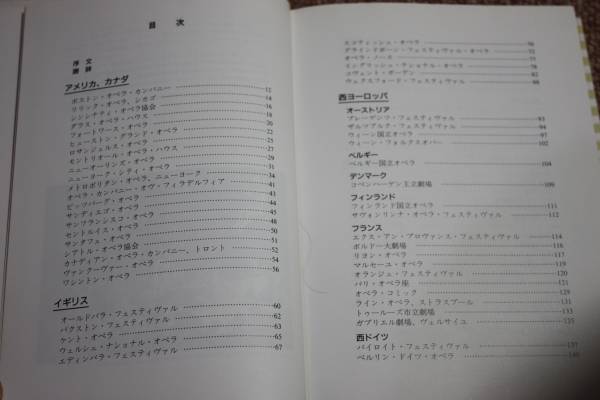 目 次
序 文
謝 辞
アメリカ、カナダ
ボストン・オペラ・カンパニー 12
リリック・オペラ、シカゴ
シンシナティ・オペラ協会
ダラス・オペラ・ハウス
フォートワース・オペラ
ヒューストン・グランド・オペラ
ロサンジェルス・オペラ
モントリオール・オペラ・ハウス
ニューオーリンズ・オペラ
ニューヨーク・シティ・オペラ
メトロポリタン・オペラ、ニューヨーク
オペラ・カンパニー・オヴ・フィラデルフィア
ピッツバーグ・オペラ
サンディエゴ・オペラ
サンフランシスコ・オペラ
セントルイス・オペラ
サンタフェ・オペラ 50
シアトル・オペラ協会 51
カナディアン・オペラ・カンパニー、トロント 52
ヴァンクーヴァー・オペラ 54
ワシントン・オペラ 56
イギリス
オールドバラ・フェスティヴァル 60
バクストン・フェスティヴァル 62
ケント・オペラ 63
ウェルシュ・ナショナル・オペラ 65
エディンバラ・フェスティヴァル 67
スコティッシュ・オペラ 70
グラインドボーン・フェスティヴァル・オペラ 72
オペラ・ノース 77
イングリッシュ・ナショナル・オペラ
コヴェント・ガーデン 82
ウェクスフォード・フェスティヴァル
西ヨーロッパ
オーストリア
ブレーゲンツ・フェスティヴァル 93
ザルツブルク・フェスティヴァル 94
ウィーン国立オペラ
ウィーン・フォルクスオパー
ベルギー
ベルギー国立オペラ 104
デンマーク
コペンハーゲン王立劇場 109
フィンランド
フィンランド国立オペラ 111
サヴォンリンナ・オペラ・フェスティヴァル 112
フランス
エクス・アン・プロヴァンス・フェスティヴァル 114
ボルドー大劇場 116
リヨン・オペラ 117
マルセーユ・オペラ 119
オランジュ・フェスティヴァル 120
パリ・オペラ座 121
オペラ・コミック 129
ライン・オペラ、ストラスブール 131
トゥールーズ市立劇場 133
ガブリエル劇場、ヴェルサイユ 135
西ドイツ
バイロイト・フェスティヴァル 137
ベルリン・ドイツ・オペラ